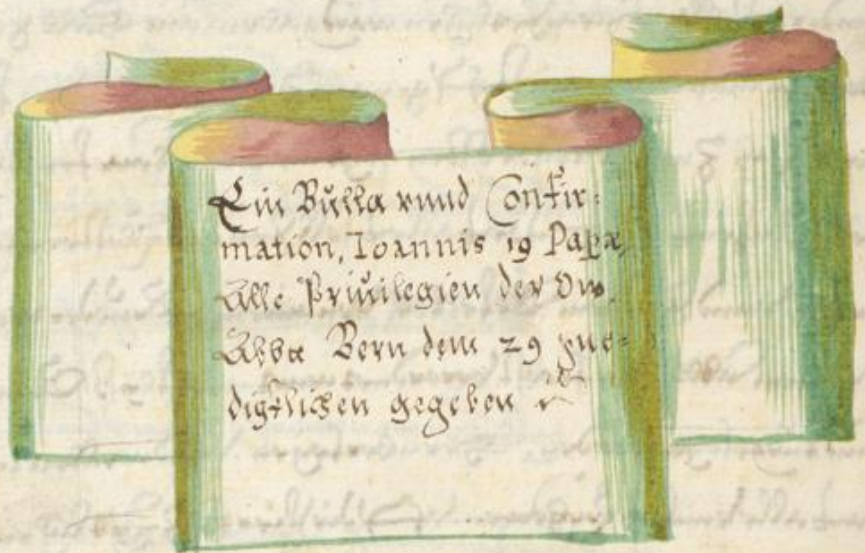 Ein Bulla vnnd Confir:
mation, Ioannis 19 Papæ,
Alle Priuilegien der Ow.
Abbt Bern dem 29 gne=
digklichen gegeben